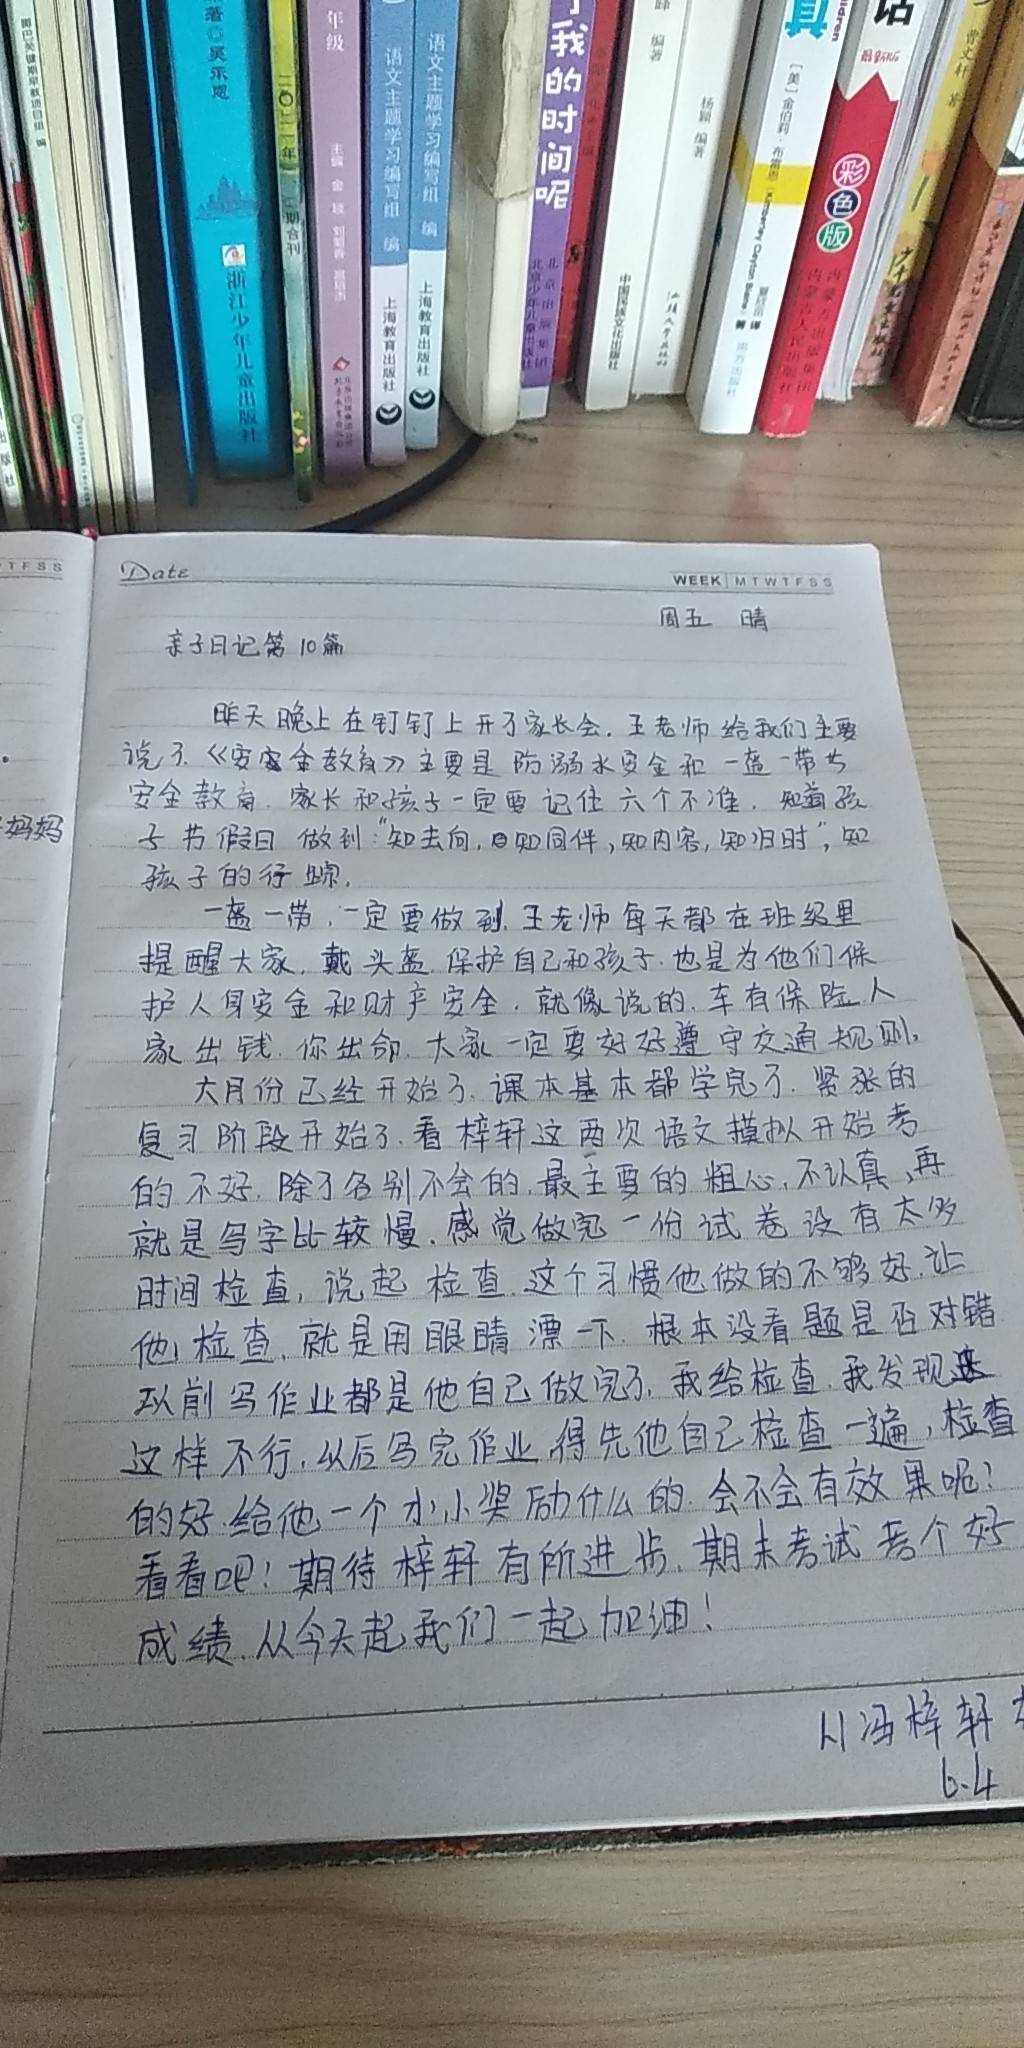 著◎吴乐恩
浙江少年儿童出版社
二〇二一年
期合刊
年级
主编
语文主题学习编写组 编
上海教育出版社
语文主题学习编写组 编
上海教育出版社
了我的时间呢
北京出版集团
北京少年儿童出版社
编著
中国民族文化出版社
杨颖 编著
汕头大学出版社
真
[美]金伯莉·布雷恩
著
译
南方出版社
话
最新版
彩色版
内蒙古出版集团
内蒙古人民出版社
曹文轩 著
TFSS
妈妈
Date
WEEK MTWTFSS
周五 晴
亲子日记第10篇
昨天晚上在钉钉上开了家长会.王老师给我们主要
说了《安全教育》主要是防溺水安全和一盔一带与
安全教育.家长和孩子一定要记住六个不准.知道孩
子节假日做到:“知去向,知同伴,知内容,知归时”,知
孩子的行踪.
一盔一带.一定要做到.王老师每天都在班级里
提醒大家.戴头盔.保护自己和孩子.也是为他们保
护人身安全和财产安全.就像说的.车有保险.人
家出钱.你出命.大家一定要好好遵守交通规则。
六月份已经开始了.课本基本都学完了.紧张的
复习阶段开始了.看梓轩这两次语文摸拟开始考
的不好.除了各别不会的.最主要的粗心,不认真,再
就是写字比较慢.感觉做完一份试卷没有太多
时间检查,说起检查.这个习惯他做的不够好.让
他检查,就是用眼睛漂一下.根本没看题是否对错
以前写作业都是他自己做完了.我给检查.我发现
这样不行.以后写完作业.得先他自己检查一遍,检查
的好.给他一个小小奖励什么的.会不会有效果呢?
看看吧!期待梓轩有所进步.期末考试考个好
成绩.从今天起我们一起加油!
从冯梓轩
6.4